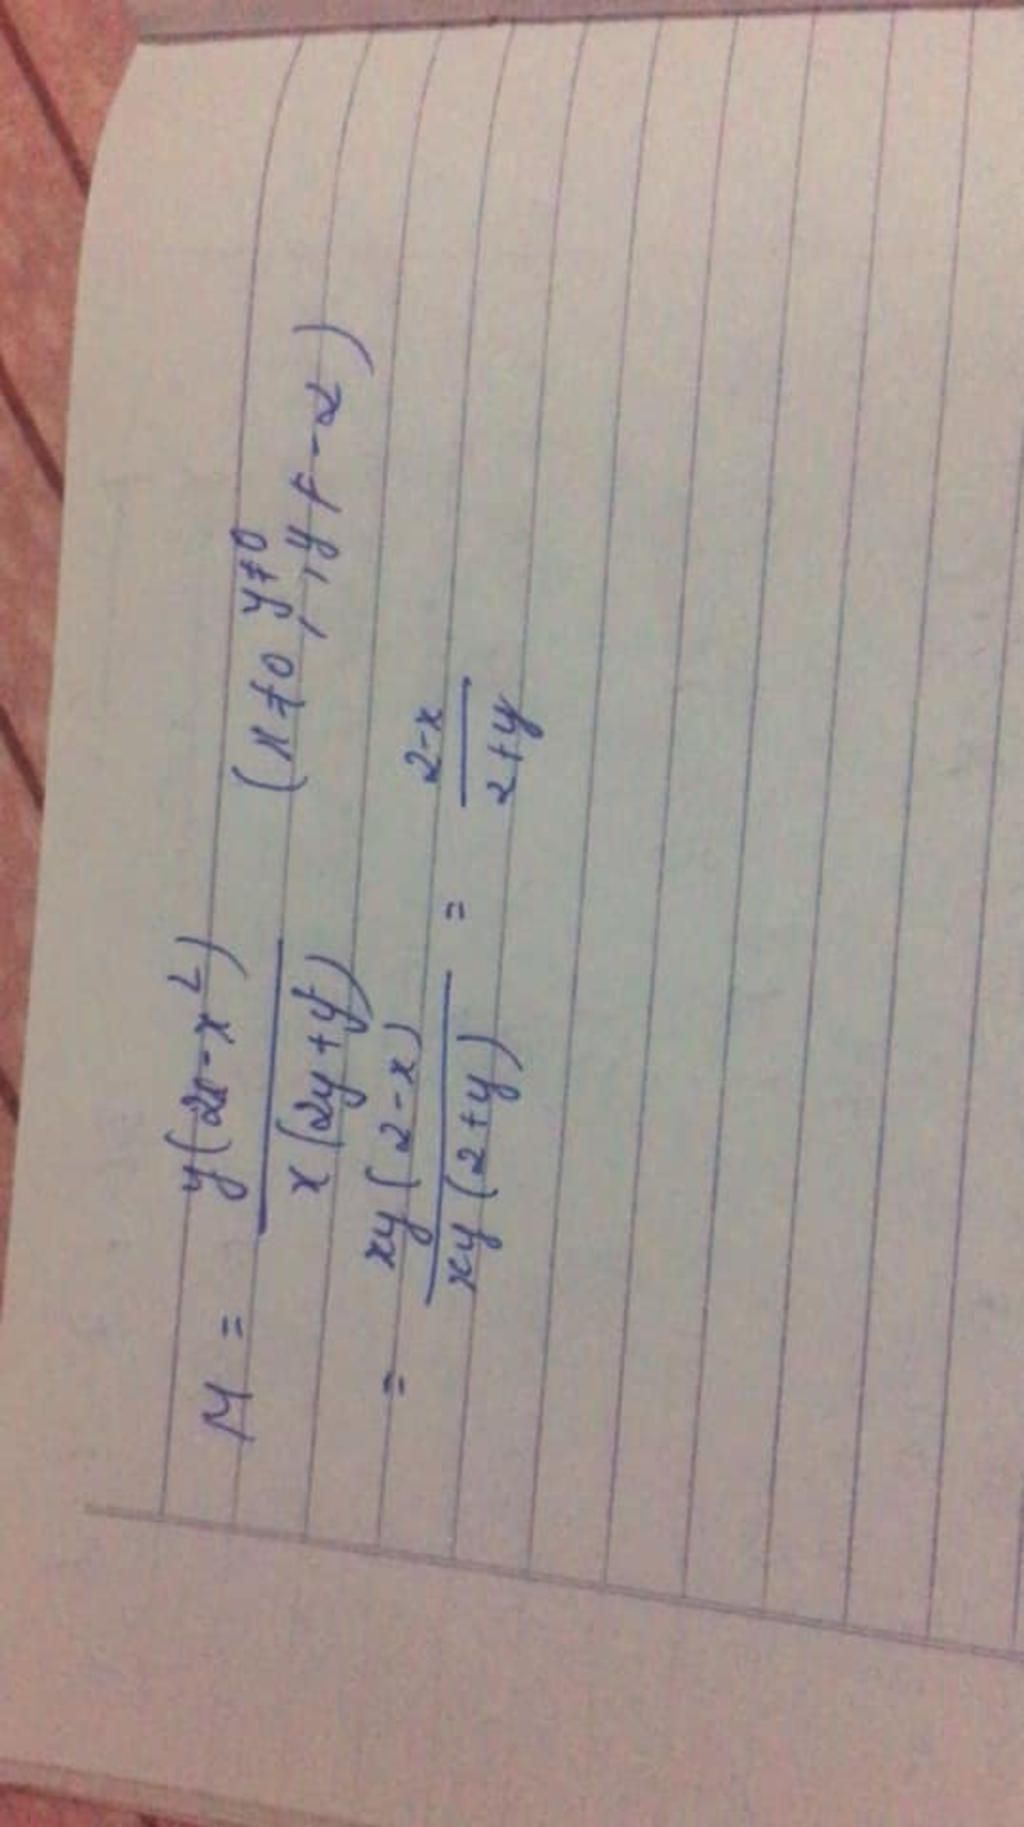 M = y(2x-x²) / x(2y+y²) (x≠0, y≠0, y≠-2)
= xy(2-x) / xy(2+y) = 2-x / 2+y